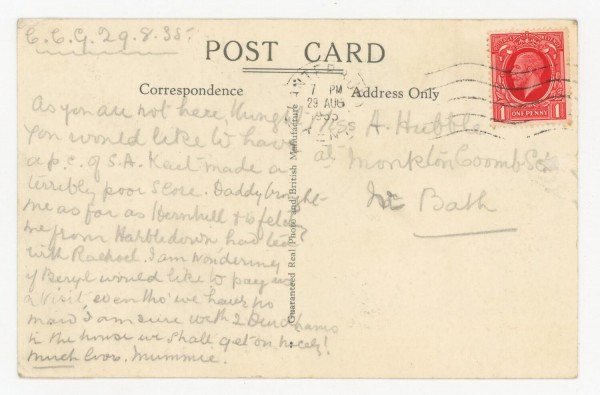 C.C.G. 29.8.35.
POST CARD
Correspondence
Address Only
7 PM
29 AUG
1935
ONE PENNY
1 1
As you are not here, thought
you would like to have
a p.c. of S.A. Kent made a
terribly poor score. Daddy brought
me as far as Hernhill &
me from Harbledown had tea
with Rachael. I am wondering
if Beryl would like to pay us
a visit, even tho' we have no
maid I am sure with 2
in the house we shall get on nicely!
Much love. Mummie.
A. Hubble
at Monkton Coombe Sc.
Nr Bath
Guaranteed Real Photo and British Manufacture